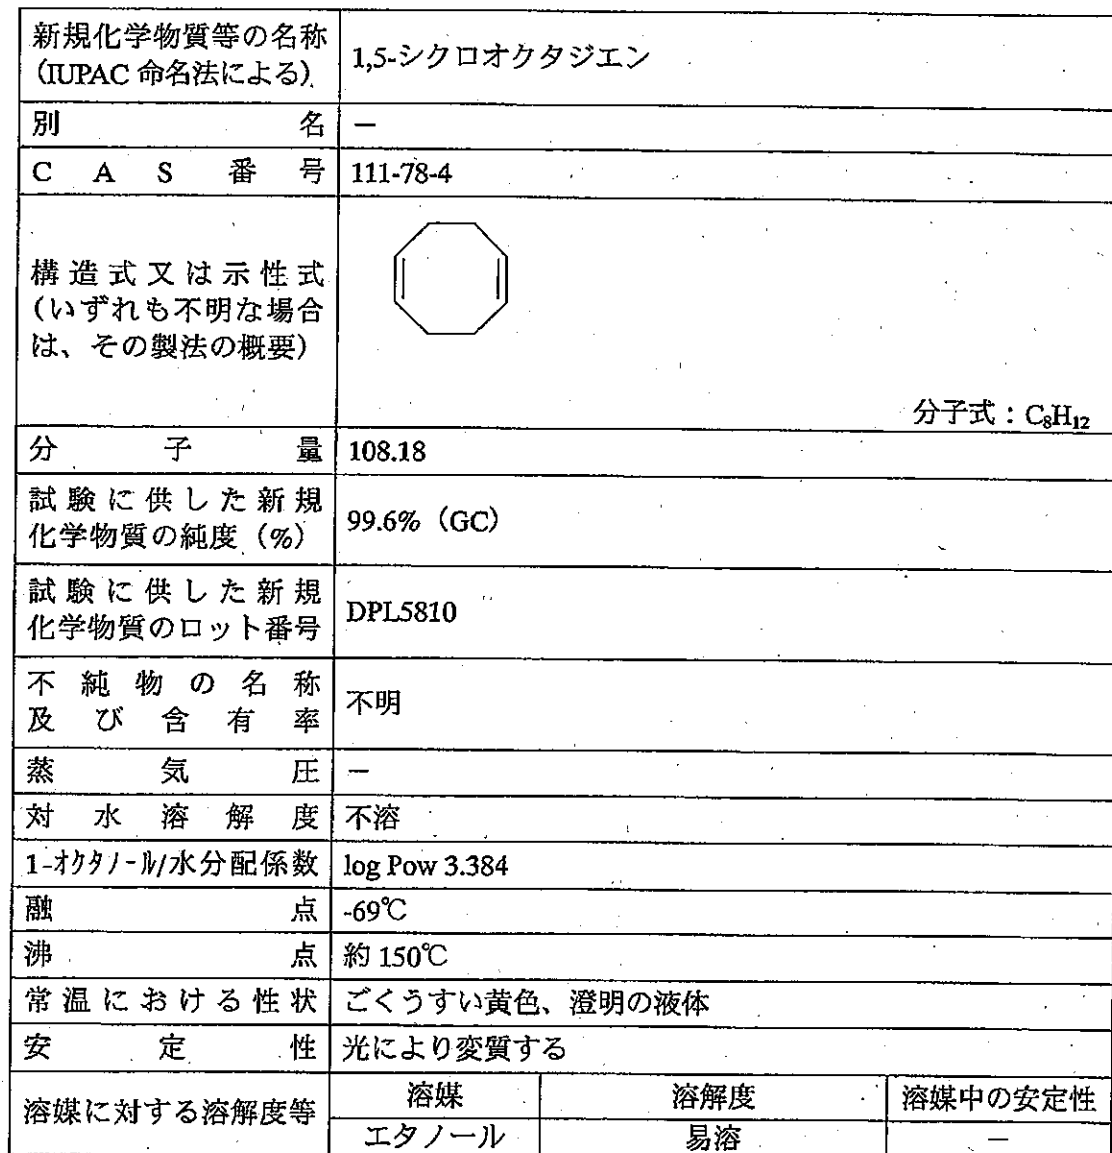 新規化学物質等の名称
(IUPAC 命名法による)
1,5-シクロオクタジエン
別名
－
CAS番号
111-78-4
構造式又は示性式
(いずれも不明な場合
は、その製法の概要)
分子式：C₈H₁₂
分子量
108.18
試験に供した新規
化学物質の純度（%）
99.6%（GC）
試験に供した新規
化学物質のロット番号
DPL5810
不純物の名称
及び含有率
不明
蒸気圧
－
対水溶解度
不溶
1-ｵｸﾀﾉｰﾙ/水分配係数
log Pow 3.384
融点
-69℃
沸点
約 150℃
常温における性状
ごくうすい黄色、澄明の液体
安定性
光により変質する
溶媒に対する溶解度等
溶媒
溶解度
溶媒中の安定性
エタノール
易溶
－